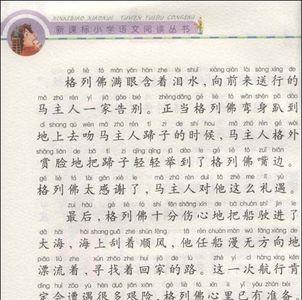 XINKEBIAO XIAOXUE YUWEN YUEDU CONGSHU
新课标小学语文阅读丛书
gé liè fó mǎn yǎn hán zhe lèi shuǐ xiàng qián lái sòng xíng de
格列佛满眼含着泪水,向前来送行的
mǎ zhǔ rén yì jiā gào bié zhèng dāng gé liè fó wān shēn pā dào
马主人一家告别。正当格列佛弯身趴到
dì shàng qù wěn mǎ zhǔ rén tí zi de shí hou mǎ zhǔ rén gé wài
地上去吻马主人蹄子的时候,马主人格外
shǎng liǎn de bǎ tí zi qīng qīng jǔ dào le gé liè fó zuǐ biān
赏脸地把蹄子轻轻举到了格列佛嘴边。
gé liè fó tài gǎn xiè le mǎ zhǔ rén duì tā zhè me lǐ yù
格列佛太感谢了,马主人对他这么礼遇。
zuì hòu gé liè fó shí fēn shāng xīn de bǎ chuán shǐ jìn le
最后,格列佛十分伤心地把船驶进了
dà hǎi hǎi shang guā zhe shùn fēng tā rèn chuán màn wú fāng xiàng de
大海,海上刮着顺风,他任船漫无方向地
piāo liú zhe xún zhǎo zhe huí jiā de lù zhè yí cì háng xíng kěn
漂流着,寻找着回家的路。这一次航行肯
dìng huì zāo yù hěn duō jiān xiǎn gé liè fó xīn li yǐ yǒu zhǔn
定会遭遇很多艰险,格列佛心里已有准